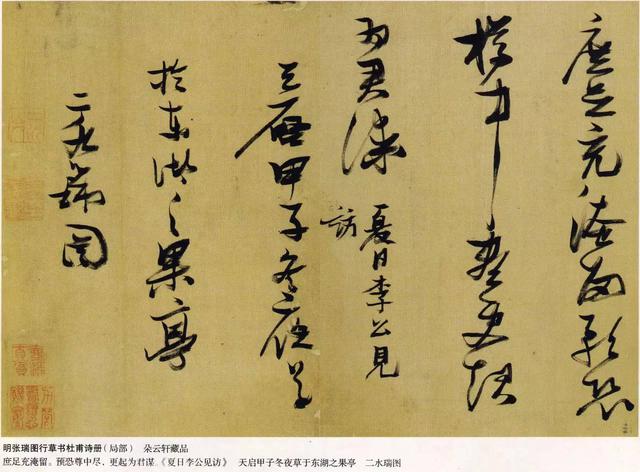 庶足充淹留預恐
樽中盡更起
為君謀 夏日李公見
訪
天啟甲子冬夜草
於東湖之果亭
二水瑞圖
明张瑞图行草书杜甫诗册(局部) 朵云轩藏品
庶足充淹留。预恐尊中尽、更起为君谋。《夏日李公见访》 天启甲子冬夜草于东湖之果亭 二水瑞图